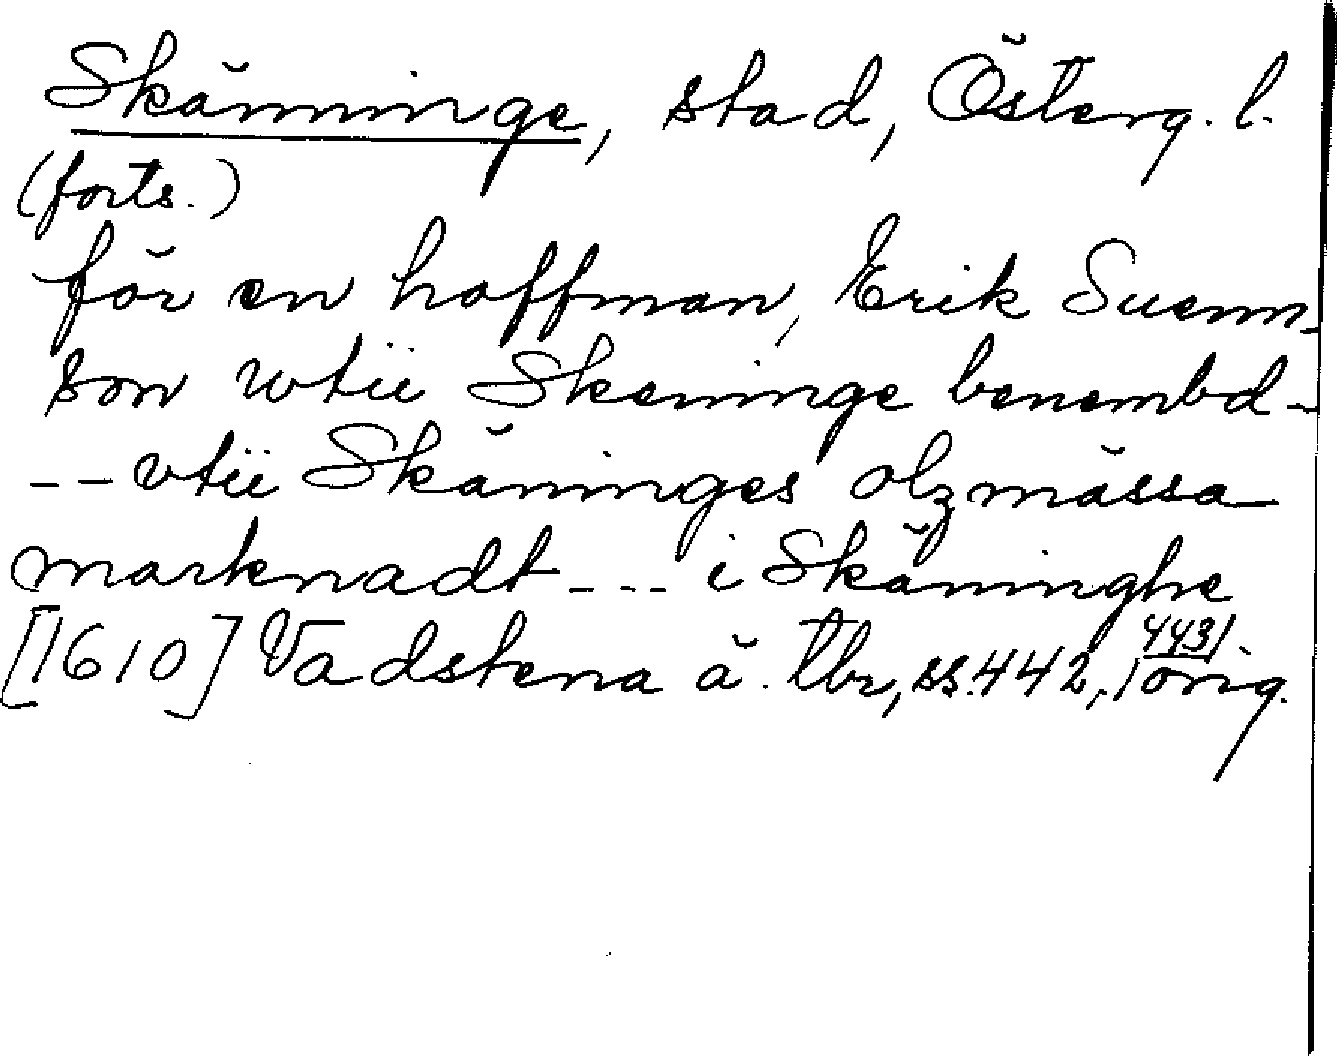 Skänninge, stad, Österg. l.
(forts.)
för en hoffman, Erik Suenn-
son wtii Skeninge benembd -
-- vtii Skäninges olzmässa
marknadt --- i Skäninghe
[1610] Vadstena ä. tbr, ss. 442, 443, orig.